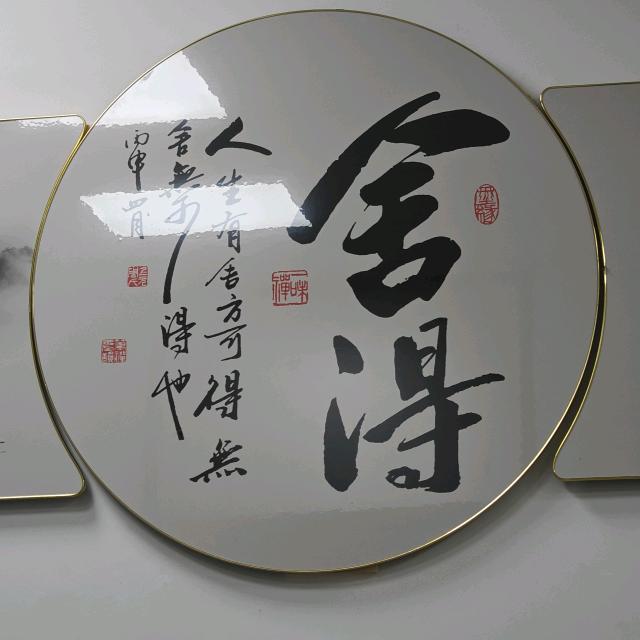 舍得
人生有舍方可得無
舍無得也
丙申
一味禪